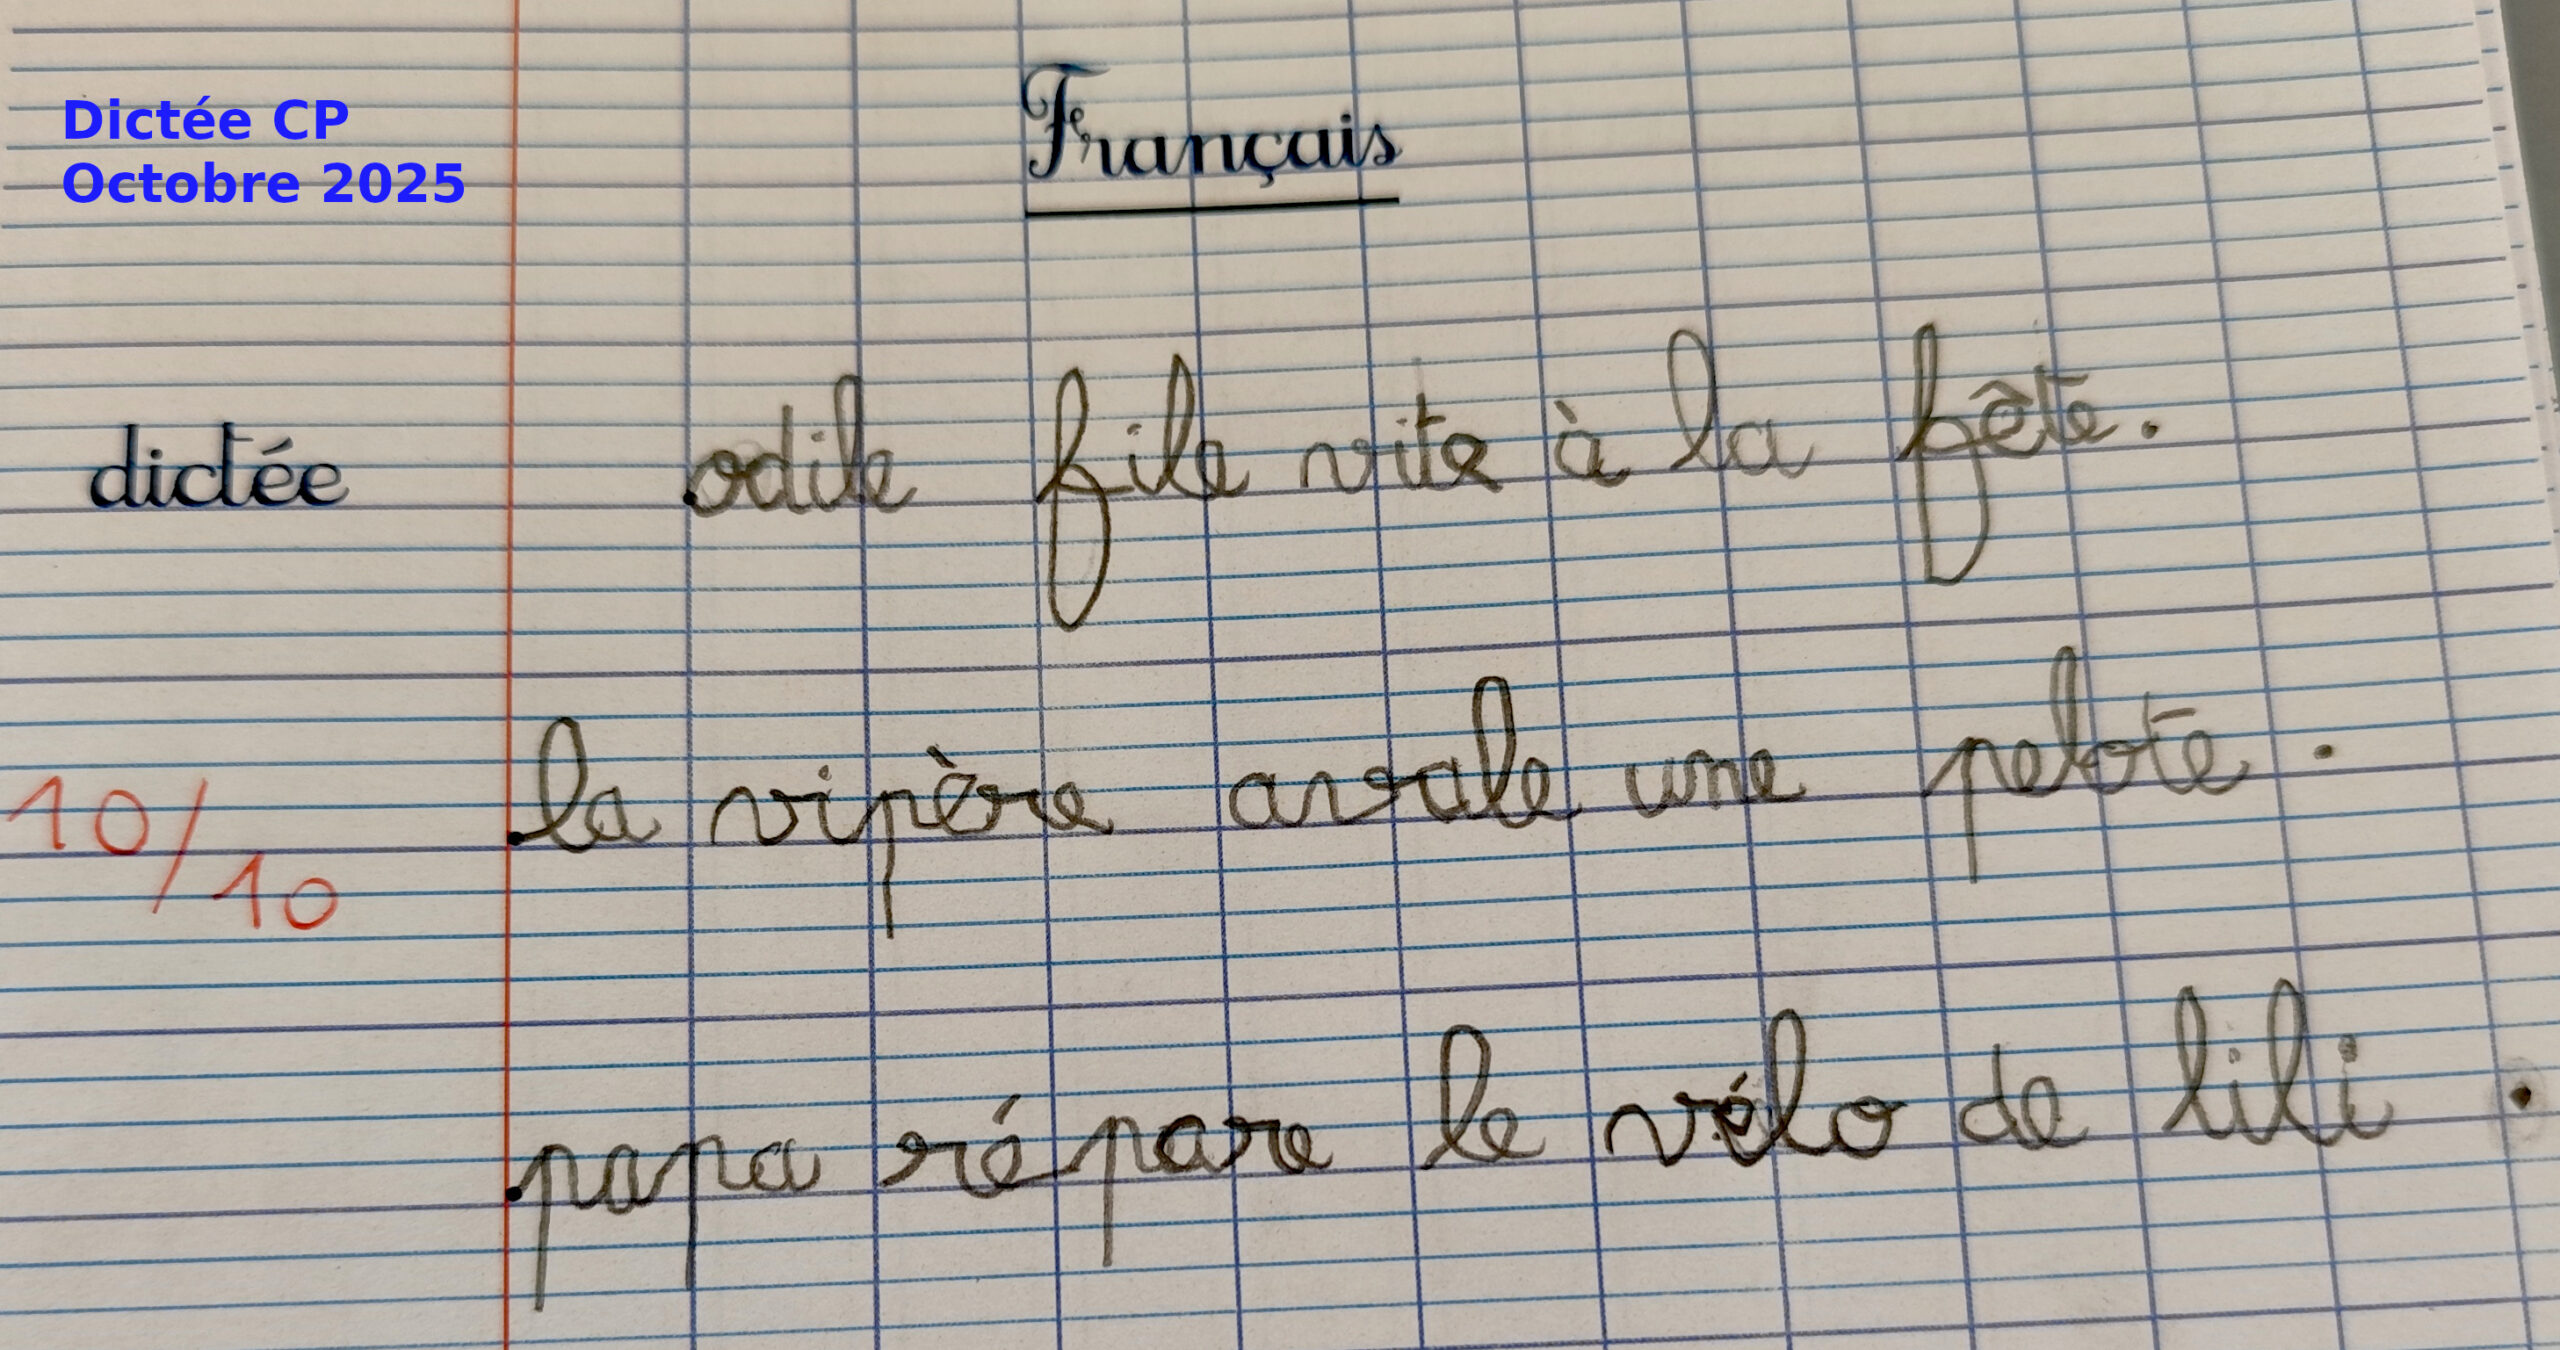 Dictée CP
Octobre 2025
Français
dictée
odile file vite à la fête.
la vipère avale une pelote.
10/10
papa répare le vélo de lili.